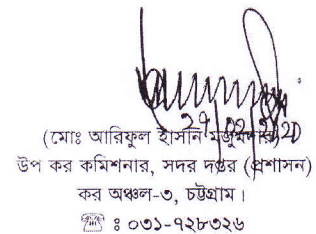 ২৭/০২/২০২০
(মোঃ আরিফুল হাসান মজুমদার)
উপ কর কমিশনার, সদর দপ্তর (প্রশাসন)
কর অঞ্চল-৩, চট্টগ্রাম।
☎ ঃ ০৩১-৭২৮৩২৬